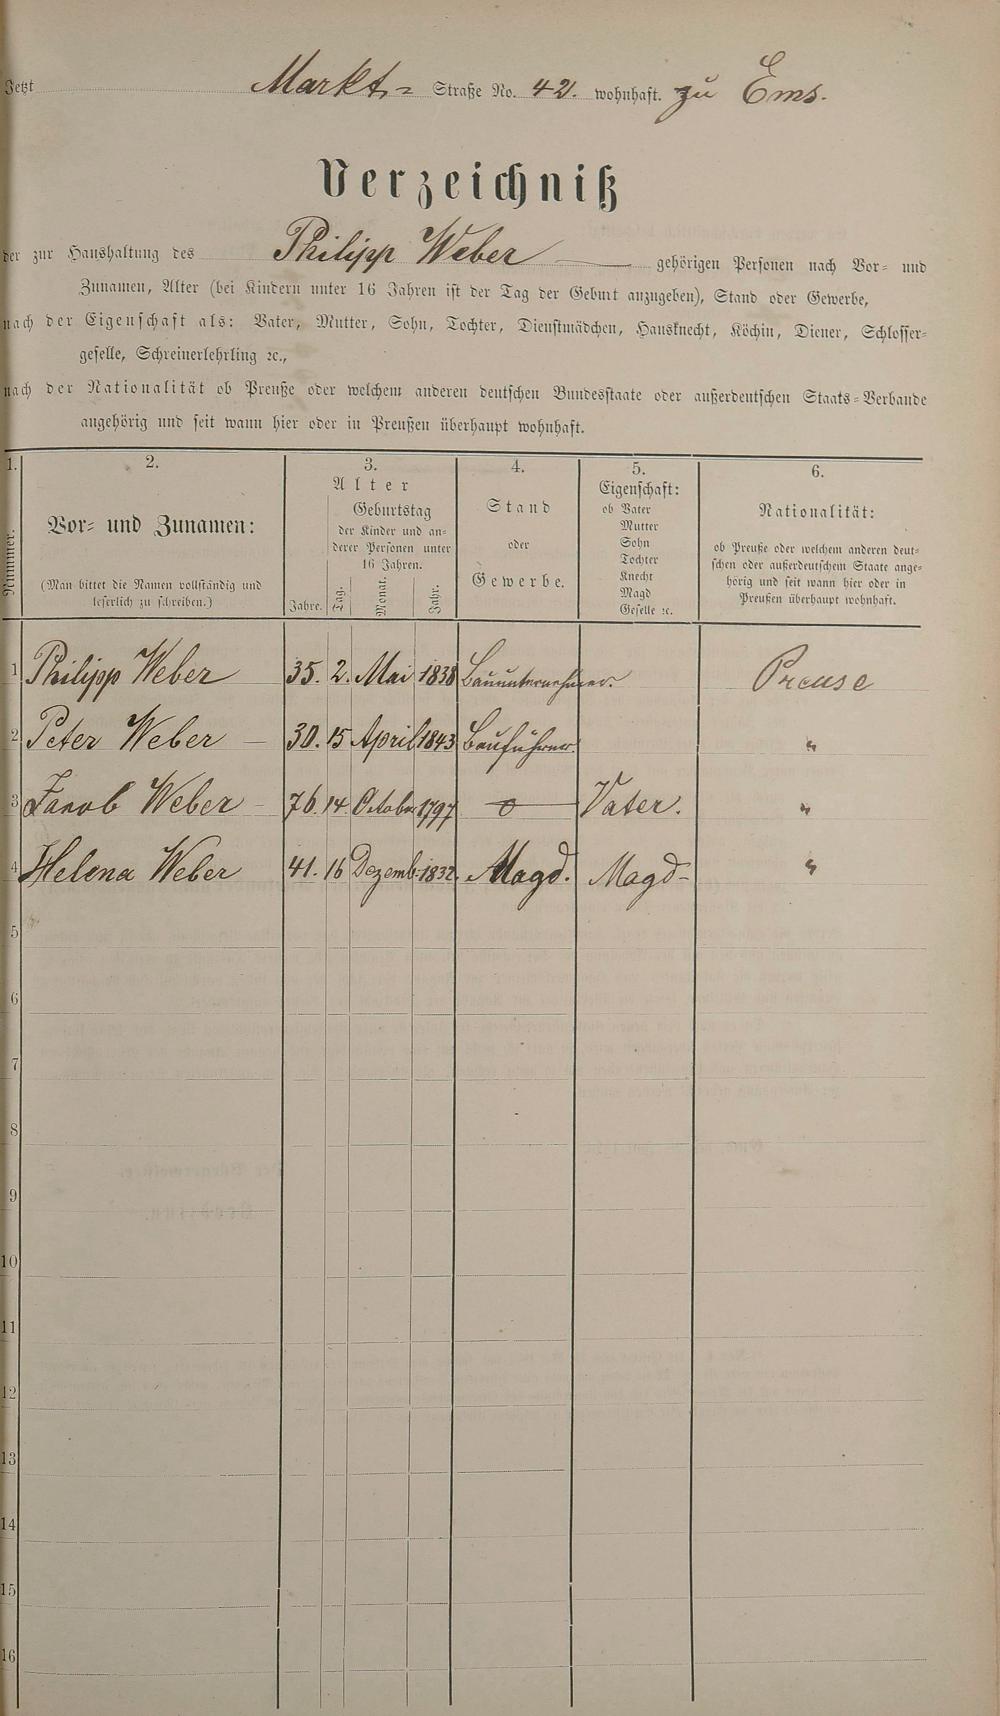 Jetzt Markt- Straße No. 42. wohnhaft. zu Ems.
Verzeichniß
der zur Haushaltung des Philipp Weber — gehörigen Personen nach Vor- und
Zunamen, Alter (bei Kindern unter 16 Jahren ist der Tag der Geburt anzugeben), Stand oder Gewerbe,
nach der Eigenschaft als: Vater, Mutter, Sohn, Tochter, Dienstmädchen, Hausknecht, Köchin, Diener, Schlosser-
geselle, Schreinerlehrling ꝛc.,
nach der Nationalität ob Preuße oder welchem anderen deutschen Bundesstaate oder außerdeutschen Staats-Verbande
angehörig und seit wann hier oder in Preußen überhaupt wohnhaft.
1.
Nummer.
2.
Vor- und Zunamen:
(Man bittet die Namen vollständig und
leserlich zu schreiben.)
3.
Alter
Jahre.
Geburtstag
der Kinder und an-
derer Personen unter
16 Jahren.
Tag.
Monat.
Jahr.
4.
Stand
oder
Gewerbe.
5.
Eigenschaft:
ob Vater
Mutter
Sohn
Tochter
Knecht
Magd
Geselle ꝛc.
6.
Nationalität:
ob Preuße oder welchem anderen deut-
schen oder außerdeutschem Staate ange-
hörig und seit wann hier oder in
Preußen überhaupt wohnhaft.
1 Philipp Weber 35. 2. Mai 1838 Bauunternehmer. Preuse
2 Peter Weber — 30. 15 April 1843 Bauführer. "
3 Jacob Weber - 76. 14. October 1797 o Vater. "
4 Helena Weber 41. 16 Dezemb. 1832. Magd. Magd- "
5
6
7
8
9
10
11
12
13
14
15
16